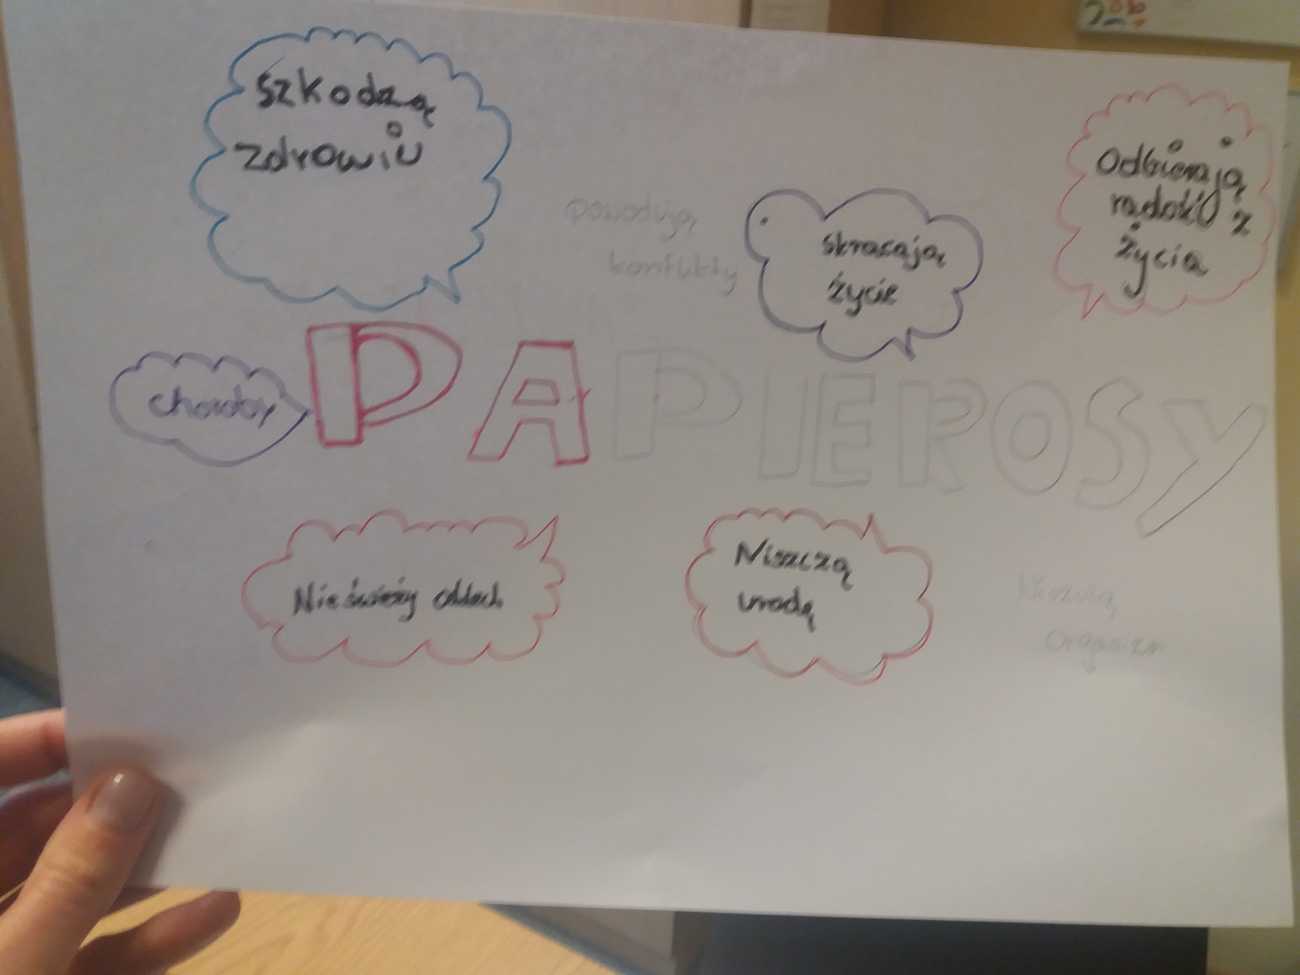 Szkodzą
zdrowiu
powodują
konflikty
skracają
życie
Odbierają
radość z
życia
choroby
PAPIEROSY
Nieświeży oddech
Niszczą
urodę
Niszczą
organizm